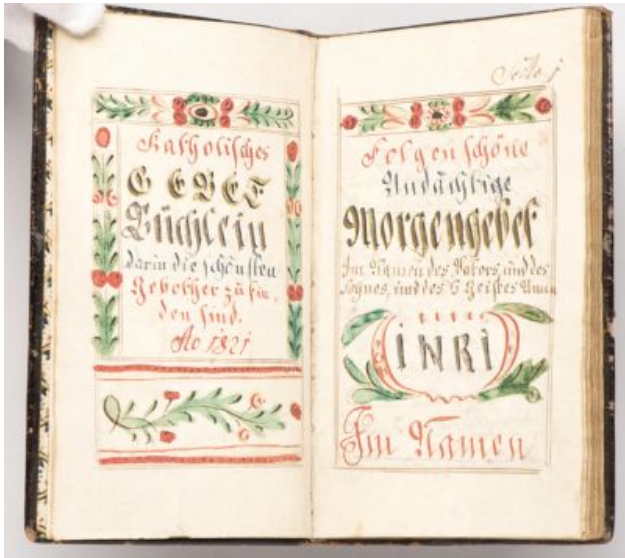 Katholisches
GEBET
Büchlein
darin die schönsten
Gebether zu fin„
den sind.
Ao 1821
Seite 1
Folgen schöne
Andächtige
Morgengebet
Im Namen des Vaters, und des
Sohnes, und des H Geistes Amen
INRI
Im Namen